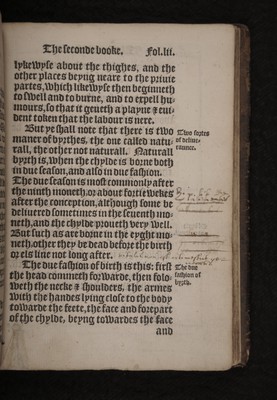 The seconde booke. Fol.lii.
lykewyse about the thighes, and the
other places beyng neare to the priuie
partes, which likewyse then beginneth
to swell and to burne, and to expell hu-
mours, so that it geueth a playne & eui-
dent token that the labour is nere.
But ye shall note that there is two
maner of byrthes, the one called natu-
rall, the other not naturall. Naturall
byrth is, when the chylde is borne both
in due season, and also in due fashion.
The due season is most commonly after
the ninth moneth, or about fortie wekes
after the conception, although some be
deliuered sometimes in the seuenth mo-
neth, and the chylde proueth very well.
But such as are borne in the eyght mo-
neth, other they be dead before the birth
or els liue not long after.
The due fashion of birth is this: first
the head commeth forwarde, then folo-
weth the necke & shoulders, the armes
with the handes lying close to the body
towarde the feete, the face and forepart
of the chylde, beyng towardes the face
and
Two sortes
of deliue-
raunce.
The due
fashion of
byrth.